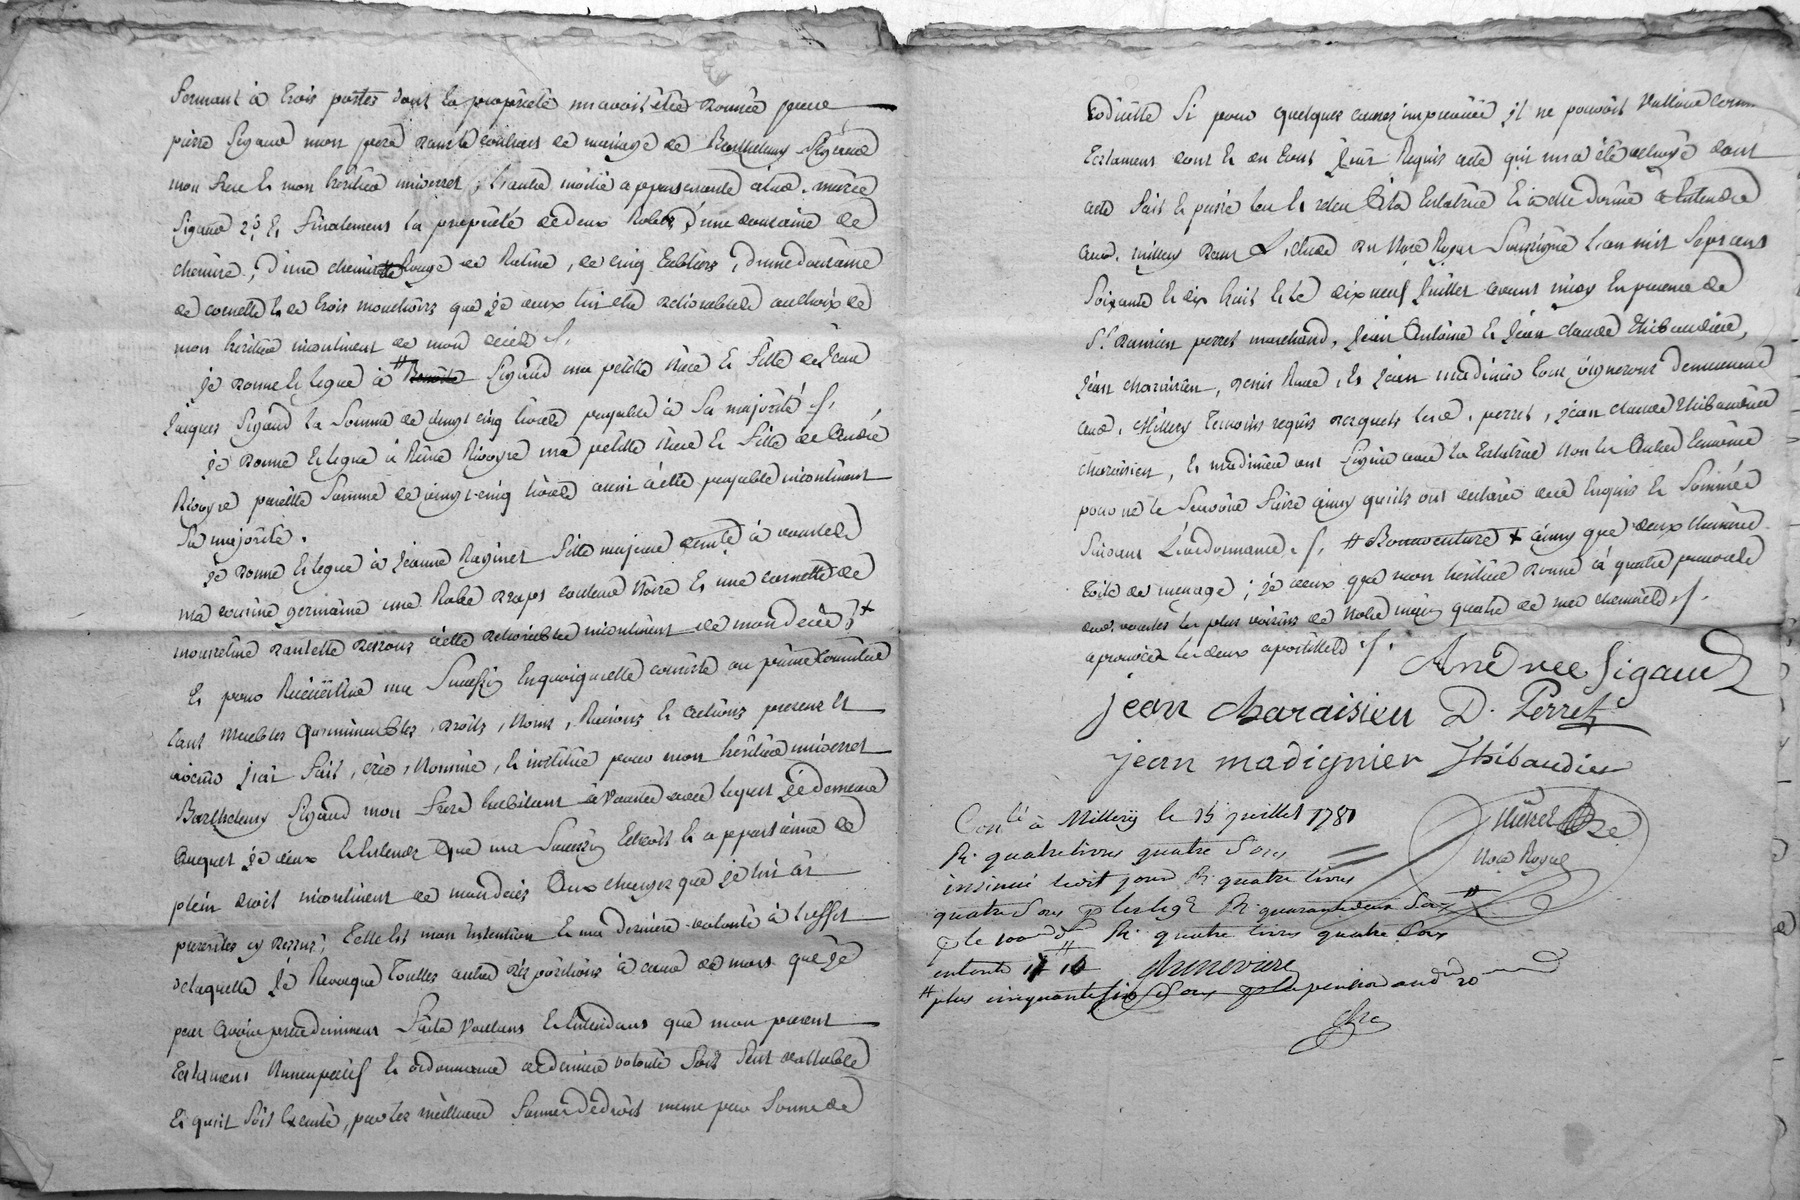 fermant à trois portes dont la propriété m'avoit été donnée par
pierre Sigaud mon pere dans le contract de mariage de Barthelemy Sigaud
mon frere et mon héritier universel, l'autre moitié appartenante a lad. mariée
Sigaud 2.° et finalement la propriété de deux Robes, d'une douzaine de
chemise, d'une chemisette Rouge de Ratine, de cinq tabliers, d'une douzaine
de cornette et de trois mouchoirs que je veux lui etre delivrable au choix de
mon héritier incontinent de mon décéd ./.
je donne et legue à # Benoite Sigaud ma petite niéce et fille de Jean
Jacques Sigaud la somme de vingt cinq livres payable à sa majorité ./.
je donne et legue à Reine Rivoyre ma petite niéce et fille de André
Rivoyre pareille somme de vingt-cinq livres aussi à elle payable incontinent
sa majorité.
je donne et legue à Jeanne Raginet fille majeure demte à vourles
ma cousine germaine une Robe draps couleur Noire et une cornette de
mousseline dantelle dessous à elle delivrable incontinent de mon décéd ./. +
Et pour Recueillir ma Succession en quoiqu'elle consiste ou puisse consister
tant Meubles qu'immeubles, droits, Noms, Raisons et actions present et
avenir j'ai fait, créé, Nommé, et institué pour mon héritier universel
Barthelemy Sigaud mon frere habitant à Vourles avec lequel je demeure
Auquel je veux et entends que ma Succession et droits appartienne de
plein droit incontinent de mon décès Aux charges que je lui ai
prescrites cy dessus; telle est mon intention et ma derniere volonté à l'effet
de laquelle je Revoque toutes autres dispositions à cause de mort que je
peux avoir precedemment faite voulans et entendans que mon present
testament Nuncupatif et ordonnance de derniere volonté soit seul vallable
Et qu'il soit exécuté, par les meilleures formes de droit meme par forme de
Codicille Si pour quelques causes imprevües il ne pouvoit Valloir comme
testament dont et du tout J'ai Requis acte qui m'a été octroyé dont
acte fait et passé leu et releu à la testatrice et à elle donné à entendre
aud. millery dans L'étude du Nore Royal Soussigné l'an mil Sept cens
Soixante et dix huit et le dix neuf Juillet avant midy en presence de
Sr. damien perret marchand, Jean Antoine et Jean claude thibaudier,
Jean charaisien, denis Rure, et Jean madinier tous vignerons demeurans
aud. Millery temoins requis desquels led. perret, Jean claude thibaudier
charaisien, et madinier ont Signé avec la testatrice Non les Autres temoins
pour ne le Scavoir faire ainsy qu'ils ont declaré de ce Enquis et Sommés
Suivant L'ordonnance ./. # Bonaventure + ainsy que deux chemise
toile de menage; je veux que mon héritier donne à quatre pauvres
dud. vourles les plus voisins de Notre maison quatre de mes chemises ./.
approuvées les deux apostilles ./.
Andree Sigaud
jean charaisieu D. Perret
jean madignier Thibaudier
Conlé à Millery le 15 juillet 1781
R. quatre livres quatre Sous
insinué ledit jour R. quatre livres
quatre Sous p les leg. R. quarante deux Sous #
p le 100e d. R. quatre livres quatre Sous
Nore Royal
# plus cinquante six Sous p la pension